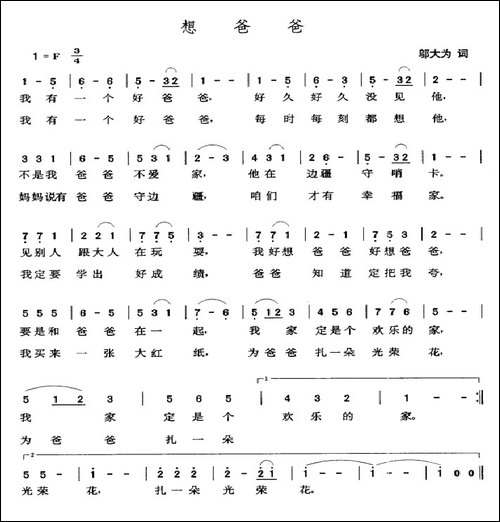 想 爸 爸
1=F 3/4
邬大为 词
1 - 5 | 6 - 6 | 5 - 32 | 1 - - | 1 - 5 | 6 - 3 | 5 - 32 | 2 - - |
我 有 一 个 好 爸 爸, 好 久 好 久 没 见 他,
我 有 一 个 好 爸 爸, 每 时 每 刻 都 想 他,
3 3 1 | 6 - 5 | 5 3 1 | 2 - 3 | 4 3 1 | 2 6 - | 5 - 32 | 1 - - |
不是我 爸 爸 不爱 家, 他在 边疆 守 哨 卡。
妈妈说有 爸 爸 守边 疆, 咱们 才有 幸 福 家。
7 7 1 | 2 2 1 | 7 7 5 | 3 - - | 7 7 1 | 2 - 1 | 7 5 3 | 2 - - |
见别人 跟大人 在玩 耍, 我好想 爸 爸 好想爸 爸,
我定要 学出 好成 绩, 爸爸 知道 定把我 夸,
5 5 5 | 6 - 5 | 5 3 1 | 7 - 6 | 5 1 2 3 | 4 5 6 | 7 7 6 | 5 - - |
要是和 爸 爸 在一 起, 我 家 定是个 欢乐的 家,
我买来 一 张 大红 纸, 为爸爸 扎一朵 光荣 花,
5 1 2 3 | 6 7 5 | 5 - - | 4 3 2 | 1 - - :|
我 家 定 是 个 欢 乐 的 家。
为 爸 爸 扎 一 朵
5 5 - | 1 - - | 2 2 2 | 2 - 2 1 | 1 - - | 1 - - | 1 0 0 ||
光荣 花, 扎一朵 光 荣 花。